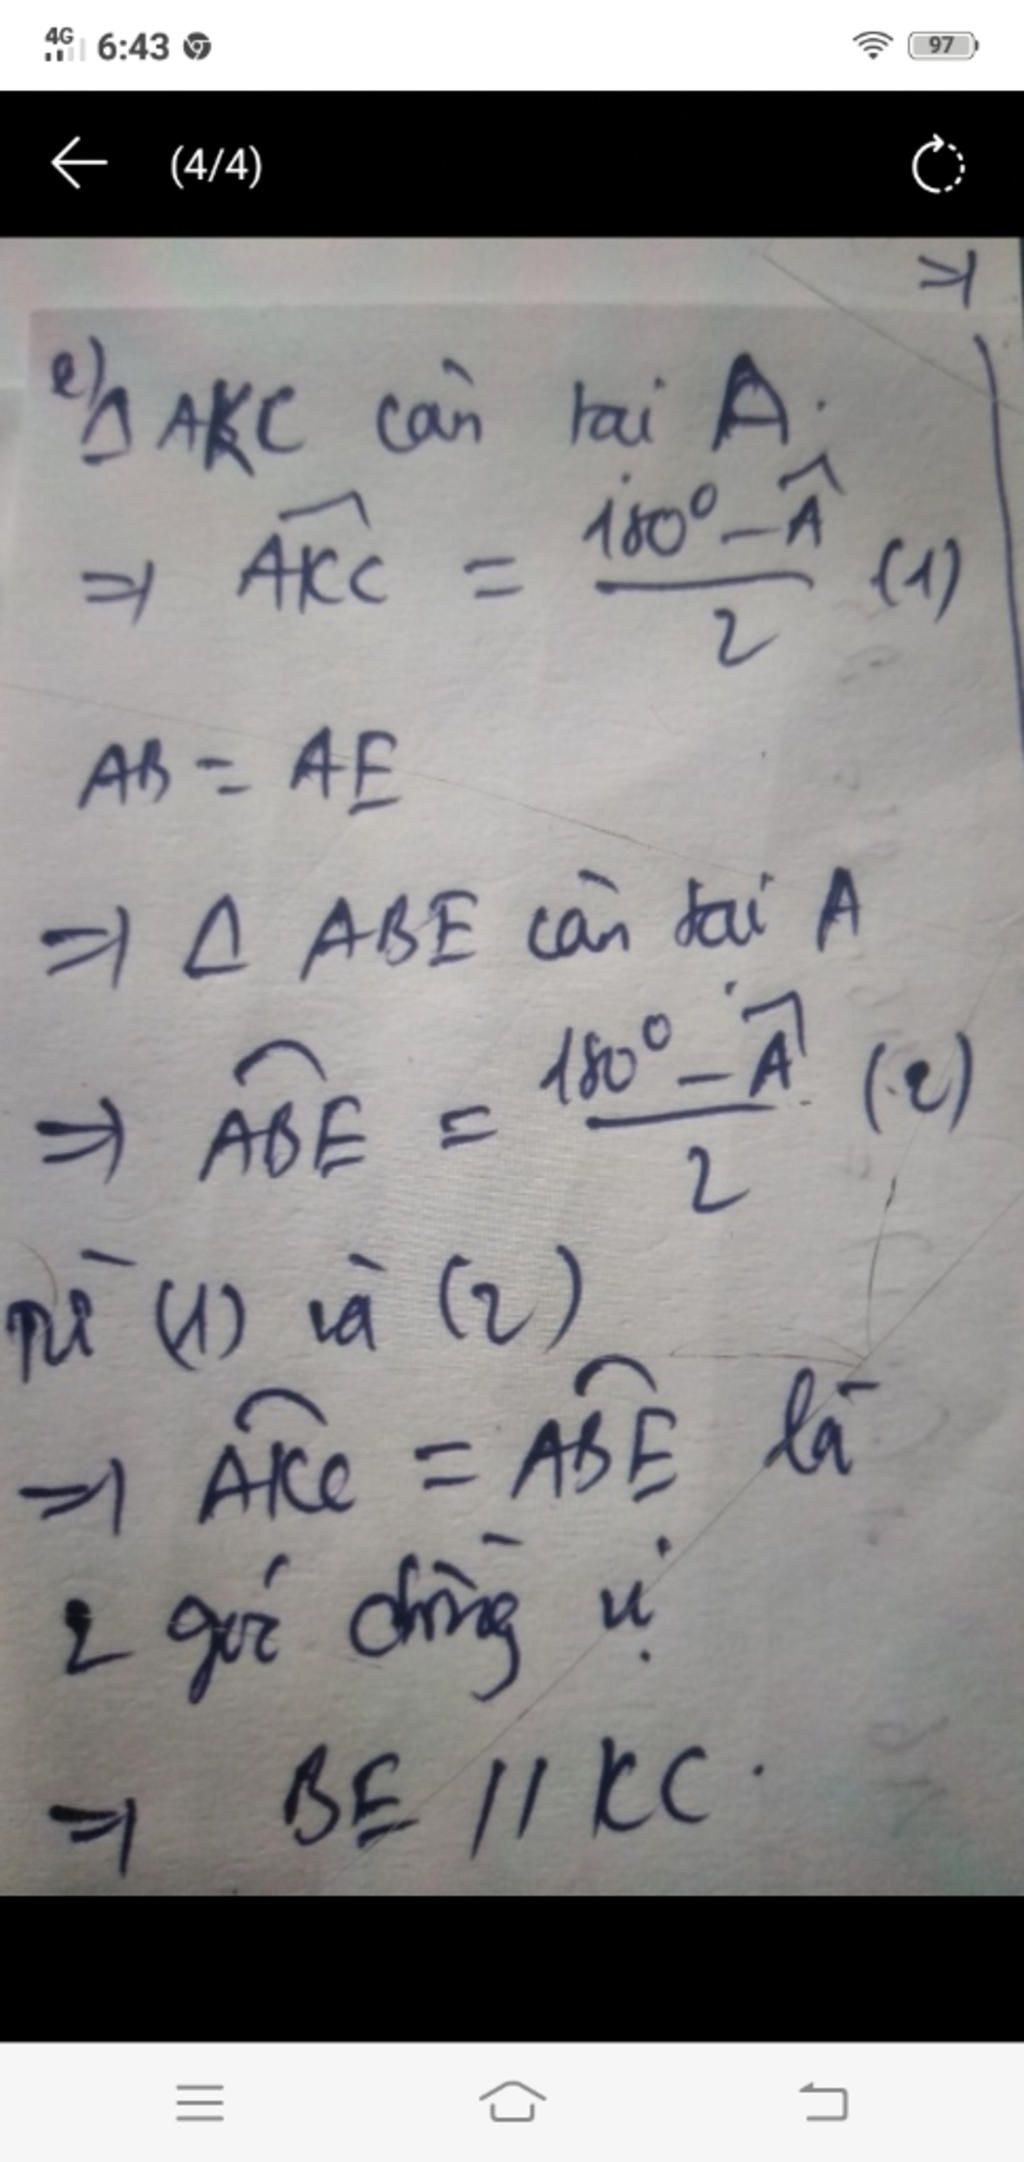 4G 6:43 97
(4/4)
⇒
e) Δ AKC cân tại A.
⇒ \widehat{AKC} = \frac{180° - \widehat{A}}{2} (1)
AB = AE
⇒ Δ ABE cân tại A
⇒ \widehat{ABE} = \frac{180° - \widehat{A}}{2} (2)
Từ (1) và (2)
⇒ \widehat{AKC} = \widehat{ABE} là
2 góc đồng vị
⇒ BE // KC.